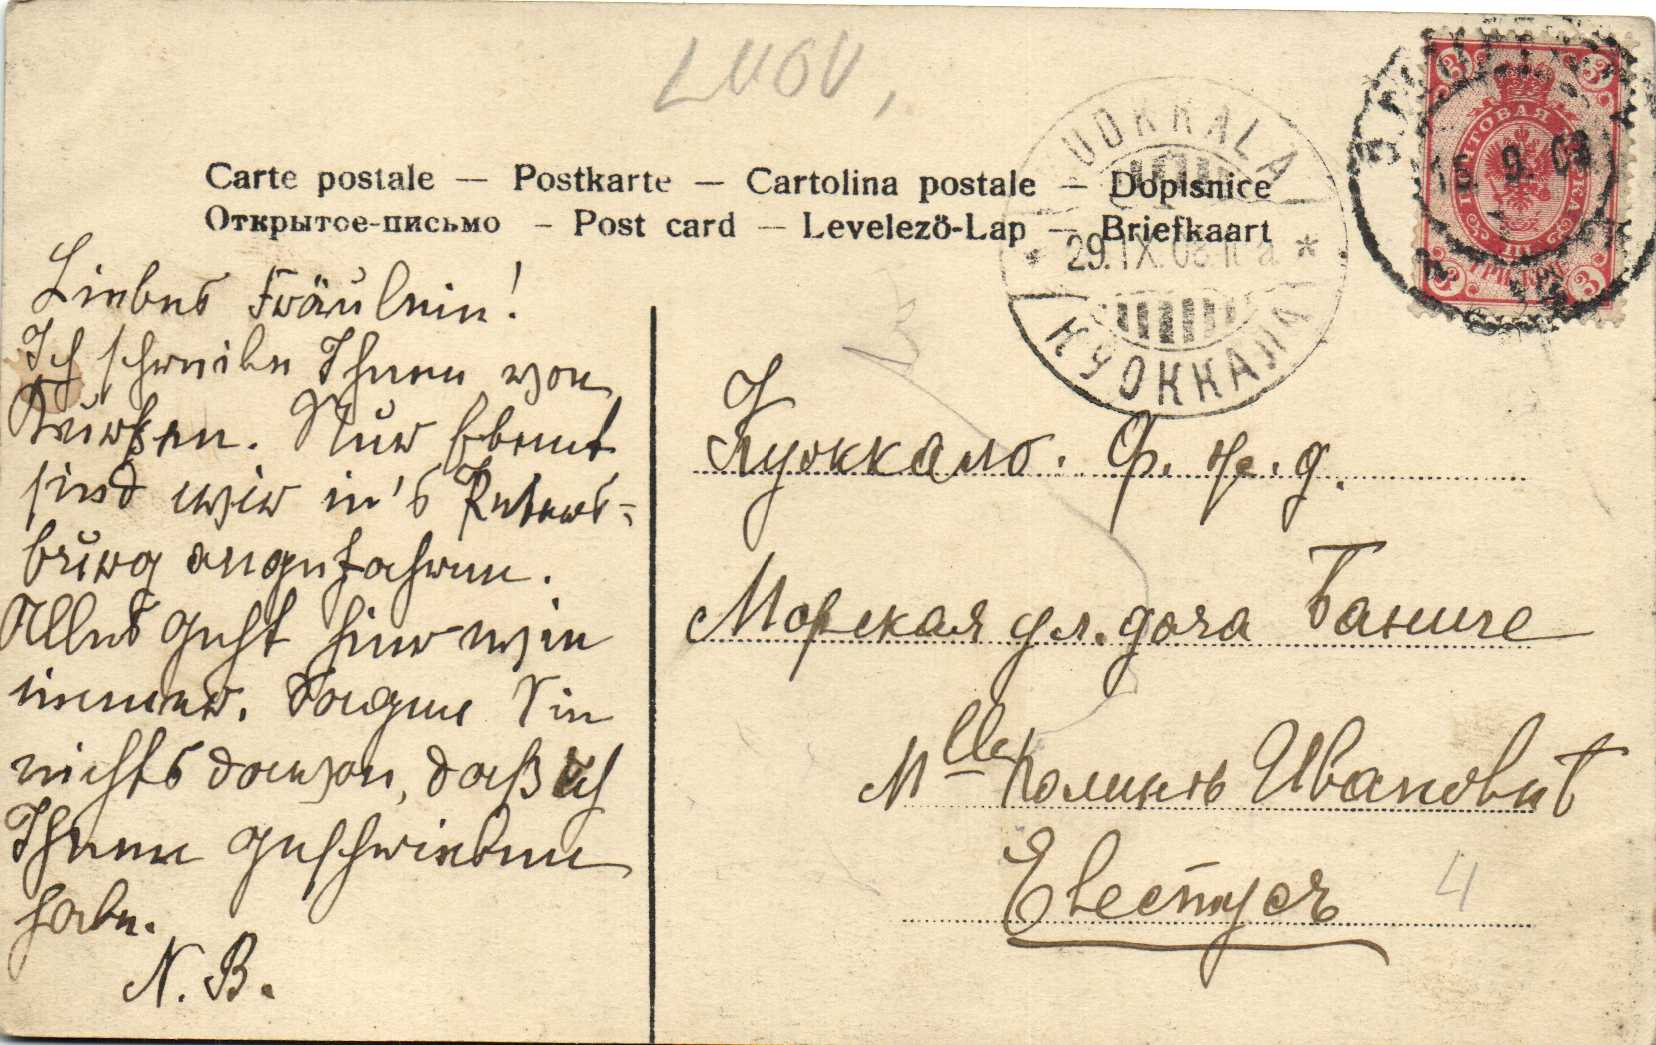 LVOV,
Carte postale — Postkarte — Cartolina postale — Dopisnice
Открытое-письмо – Post card — Levelező-Lap — Briefkaart
KUOKKALA
* 29.IX.03 11 a *
КУОККАЛА
16 9. 03
ПОЧТОВАЯ МАРКА
ТРИ КОП
3 3
3 3
Liebes Fräulein!
Ich schreibe Ihnen von
Nur
sind wir in's Peters-
burg angefahren.
Alles geht hier wie
immer. Sagen Sie
nichts davon, daß ich
Ihnen geschrieben
habe.
N. B.
Куоккало. Ф. ж. д.
Морская ул. дача
Mlle Ивановнѣ
Евестусъ
4